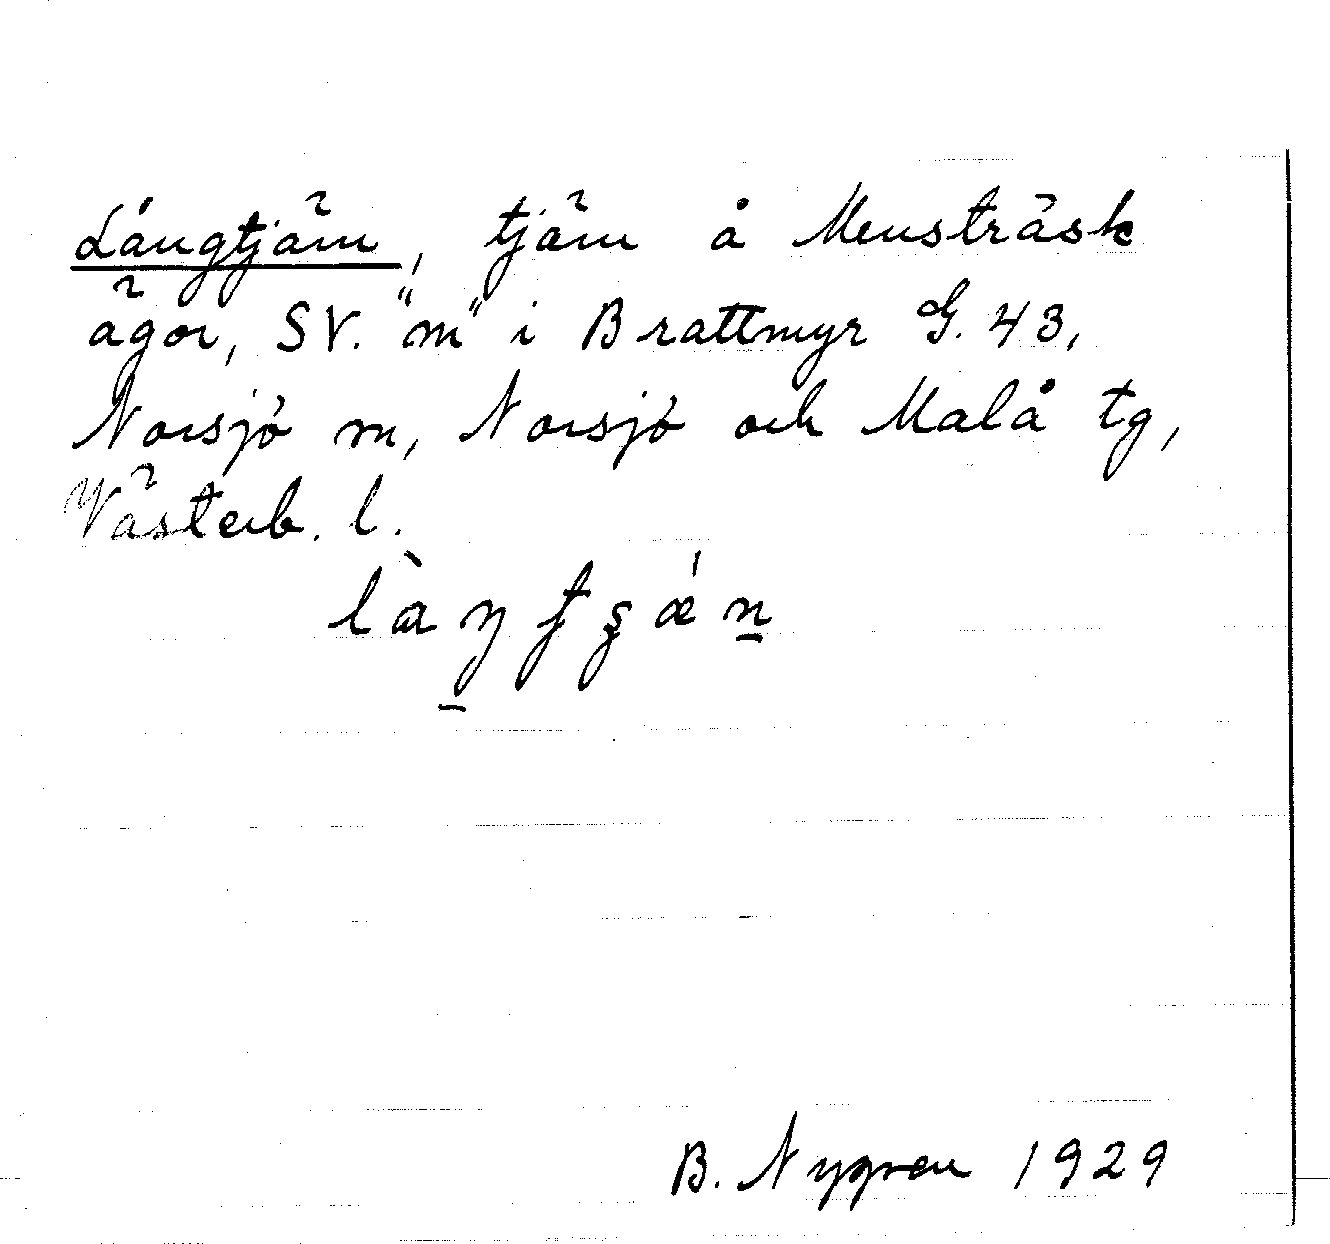 Långtjärn, tjärn å Mensträsk
ägor, SV. "m" i Brattmyr G. 43,
Norsjö m, Norsjö och Malå tg,
Västerb. l.
B. Nygren 1929